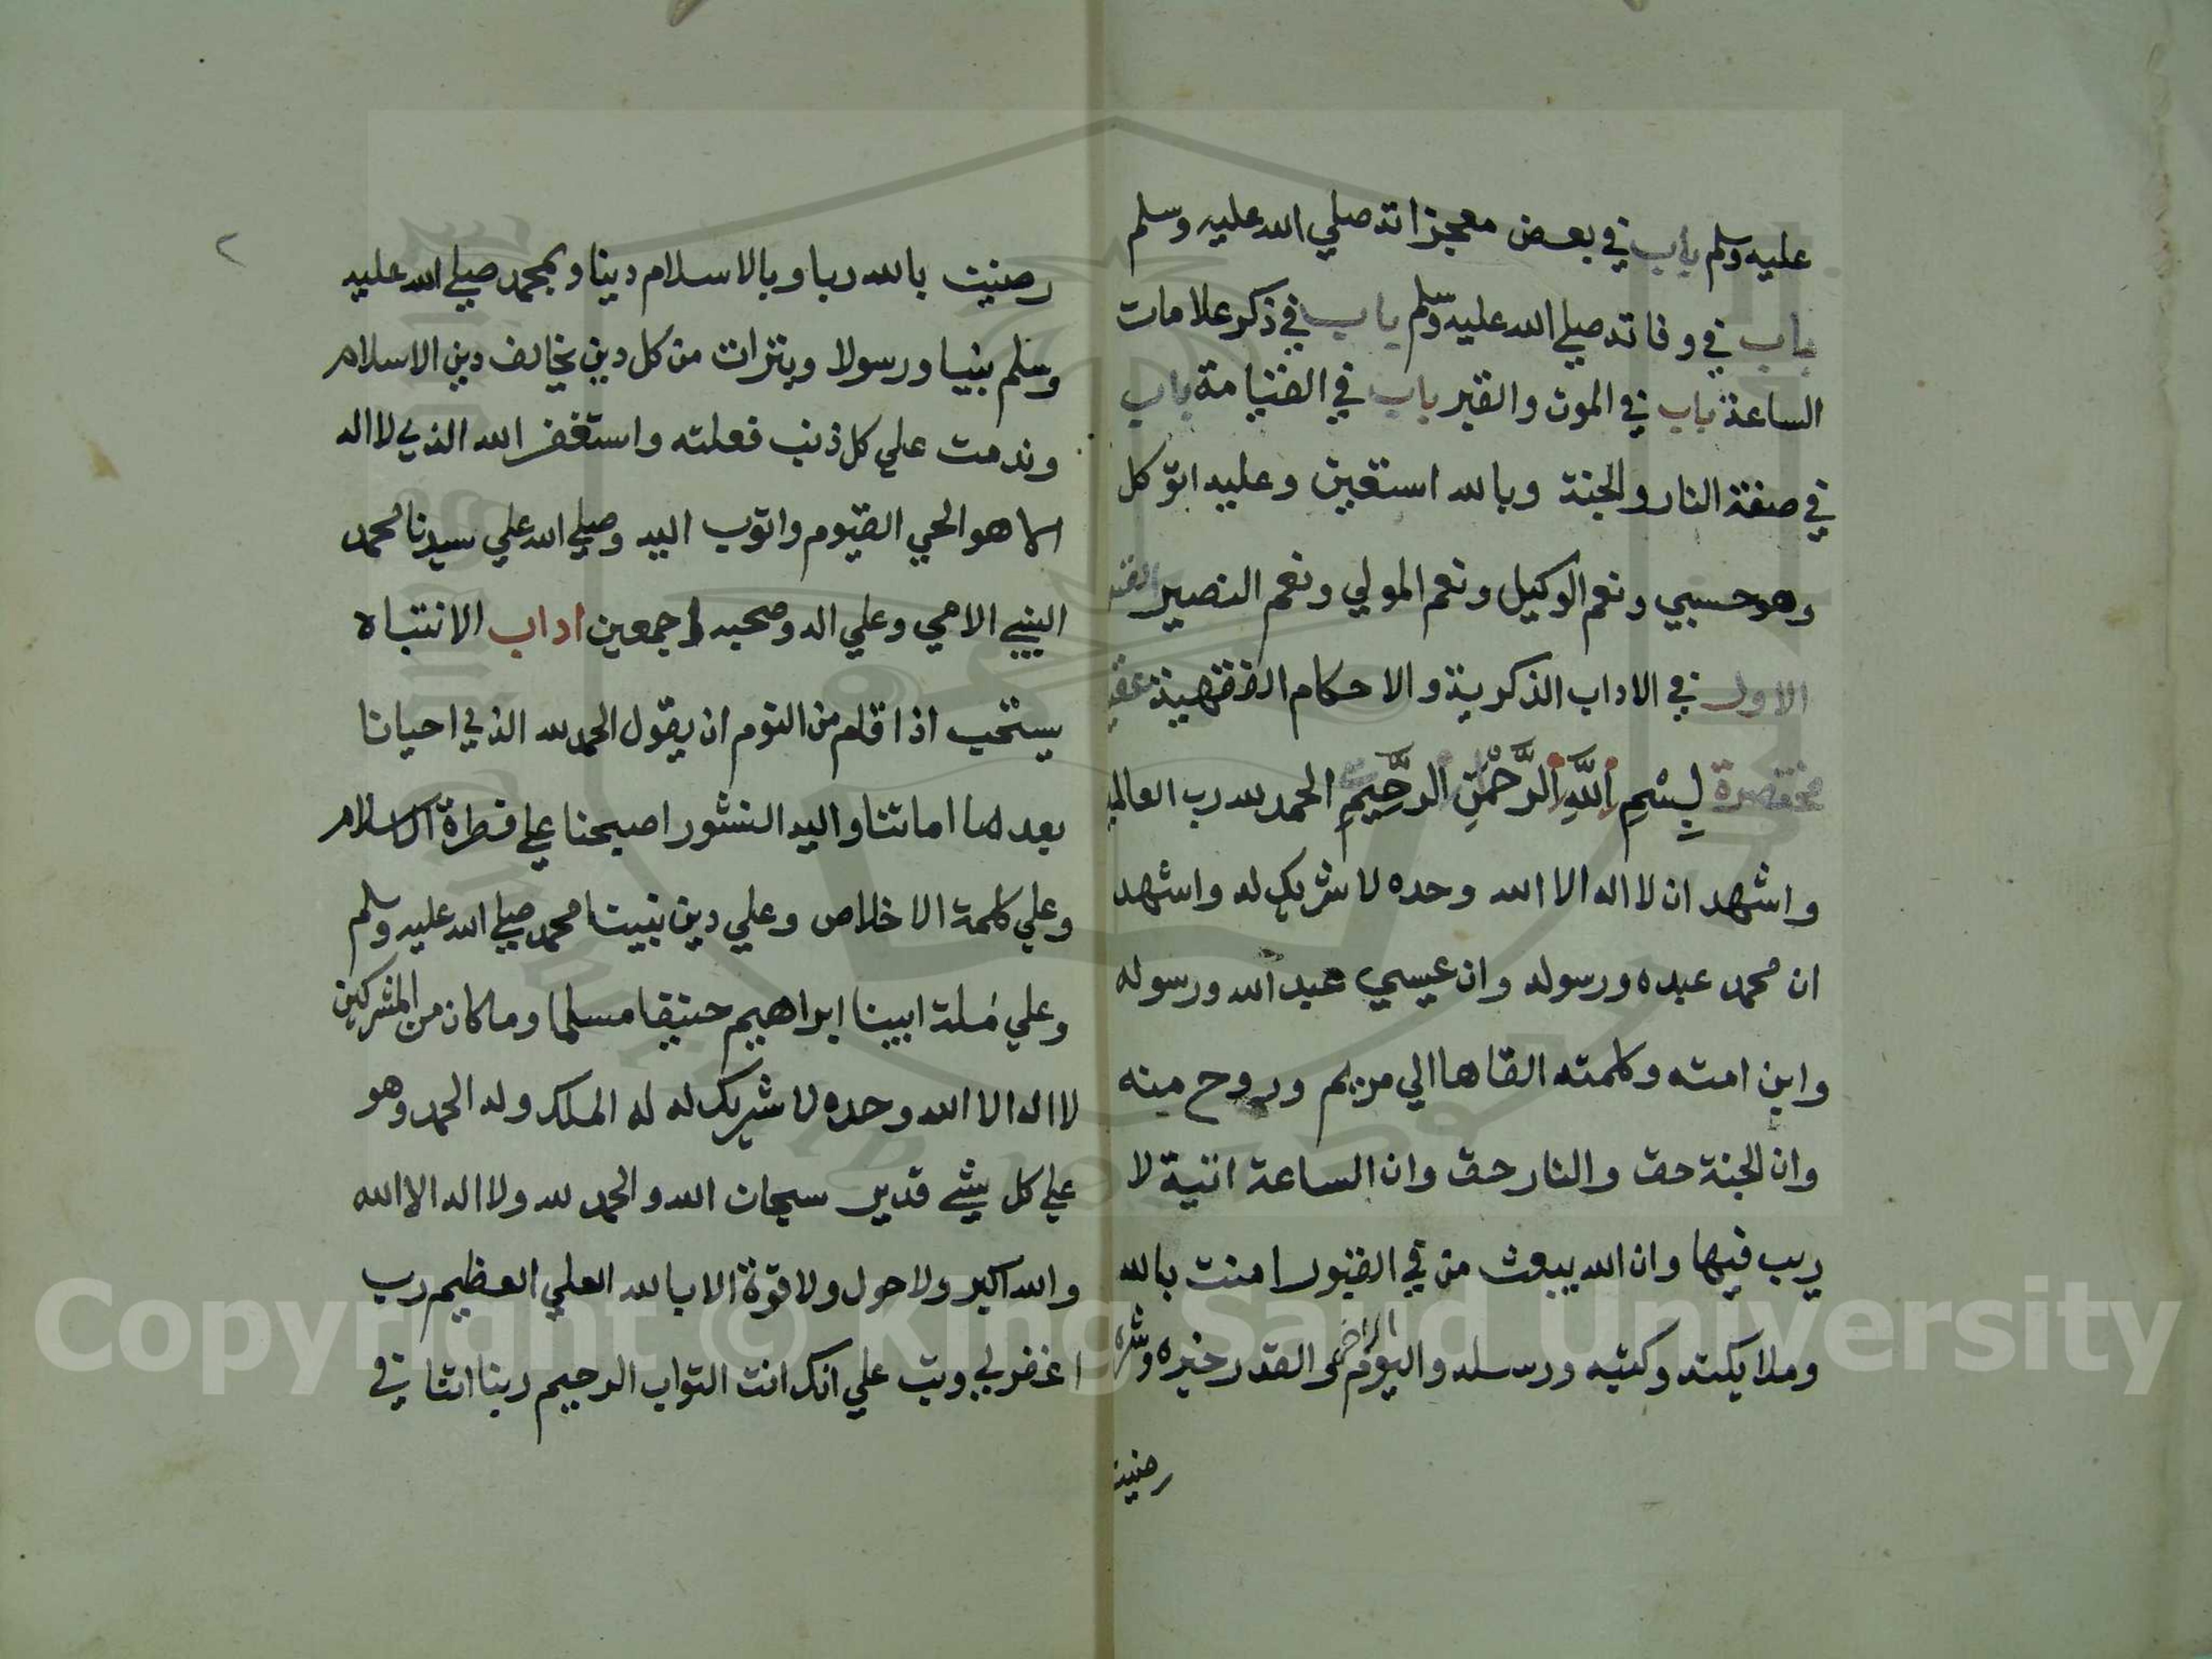 عليه وسلم باب في بعض معجزاته صلي الله عليه وسلم
باب في وفاته صلي الله عليه وسلم باب في ذكر علامات
الساعة باب في الموت والقبر باب في القيامة باب
في صفة النار والجنة وبالله استعين وعليه اتوكل
وهو حسبي ونعم الوكيل ونعم المولي ونعم النصير
الاول في الاداب الذكرية والاحكام الفقهية
مختصرة بِسْمِ اللَّهِ الرَّحْمَنِ الرَّحِيمِ الحمد لله رب العالمين
واشهد ان لا اله الا الله وحده لا شريك له واشهد
ان محمد عبده ورسوله وان عيسي عبد الله ورسوله
وابن امته وكلمته القاها الي مريم وروح منه
وان الجنة حق والنار حق وان الساعة اتية لا
ريب فيها وان الله يبعث من في القبور امنت بالله
وملايكته وكتبه ورسله واليوم الاخر والقدر خيره وشره
رضيت
٢
رضيت بالله ربا وبالاسلام دينا وبمحمد صلي الله عليه
وسلم نبيا ورسولا وبترات من كل دين يخالف دين الاسلام
وندمت علي كل ذنب فعلته واستغفر الله الذي لا اله
الا هو الحي القيوم واتوب اليه وصلي الله علي سيدنا محمد
النبي الامي وعلي اله وصحبه اجمعين اداب الانتباه
يستحب اذا قام من النوم ان يقول الحمد لله الذي احيانا
بعد ما اماتنا واليه النشور اصبحنا علي فطرة الاسلام
وعلي كلمة الاخلاص وعلي دين نبينا محمد صلي الله عليه وسلم
وعلي مُلة ابينا ابراهيم حنيفا مسلما وما كان من المشركين
لا اله الا الله وحده لا شريك له له الملك وله الحمد وهو
علي كل شي قدير سبحان الله والحمد لله ولا اله الا الله
والله اكبر ولا حول ولا قوة الا بالله العلي العظيم رب
اغفر لي وتب علي انك انت التواب الرحيم ربنا اتنا في
Copyright © King Saud University